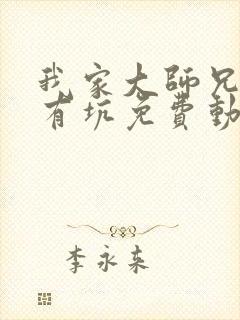 我家大師兄
有坑免費動
李永来